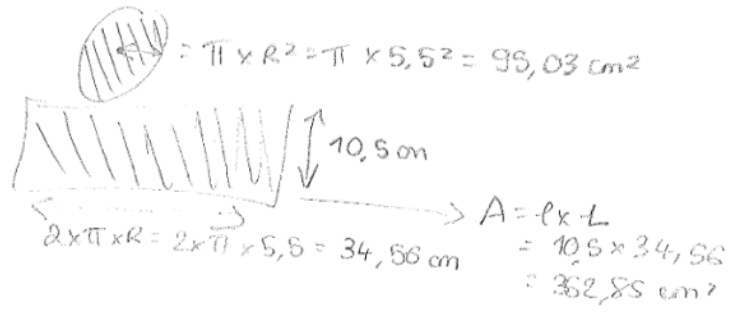 = π × R² = π × 5,5² = 95,03 cm²
10,5 cm
2 × π × R = 2 × π × 5,5 = 34,56 cm
A = l × L
= 10,5 × 34,56
= 362,85 cm²